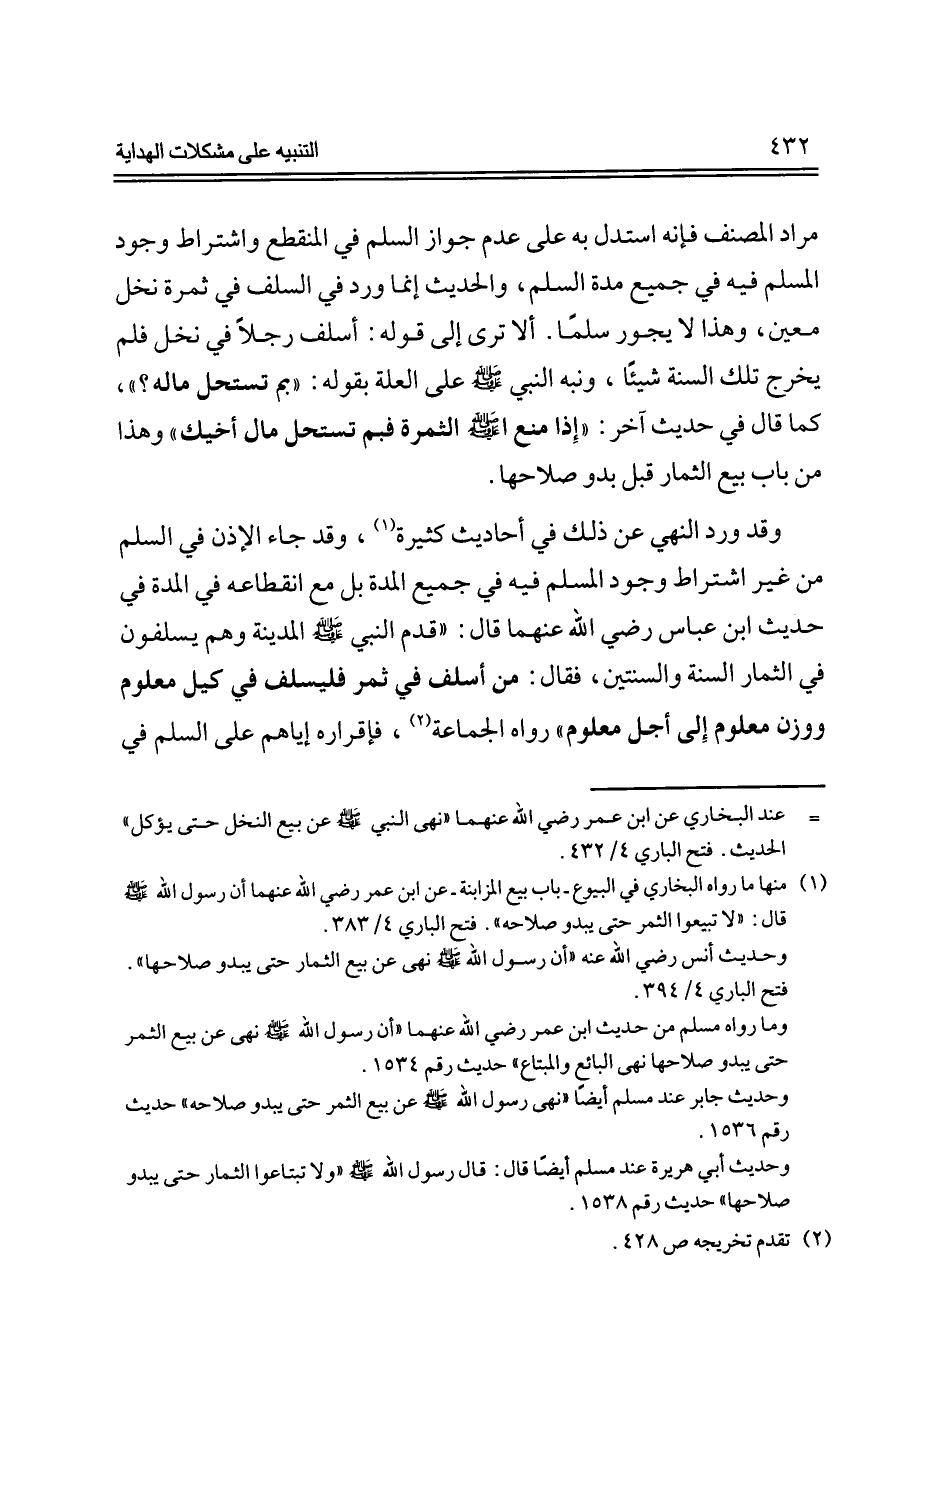 ٤٣٢
التنبيه على مشكلات الهداية
مراد المصنف فإنه استدل به على عدم جواز السلم في المنقطع واشتراط وجود
المسلم فيه في جميع مدة السلم، والحديث إنما ورد في السلف في ثمرة نخل
معين، وهذا لا يجور سلمًا. ألا ترى إلى قوله: أسلف رجلاً في نخل فلم
يخرج تلك السنة شيئًا ، ونبه النبي ﷺ على العلة بقوله: «بم تستحل ماله؟»،
كما قال في حديث آخر: «إذا منع اﷺ الثمرة فبم تستحل مال أخيك» وهذا
من باب بيع الثمار قبل بدو صلاحها.
وقد ورد النهي عن ذلك في أحاديث كثيرة(١) ، وقد جاء الإذن في السلم
من غير اشتراط وجود المسلم فيه في جميع المدة بل مع انقطاعه في المدة في
حديث ابن عباس رضي الله عنهما قال: «قدم النبي ﷺ المدينة وهم يسلفون
في الثمار السنة والسنتين، فقال: من أسلف في ثمر فليسلف في كيل معلوم
ووزن معلوم إلى أجل معلوم» رواه الجماعة(٢) ، فإقراره إياهم على السلم في
= عند البخاري عن ابن عمر رضي الله عنهما «نهى النبي ﷺ عن بيع النخل حتى يؤكل»
الحديث. فتح الباري ٤/ ٤٣٢ .
(١) منها ما رواه البخاري في البيوع ـ باب بيع المزابنة ـ عن ابن عمر رضي الله عنهما أن رسول الله ﷺ
قال: «لا تبيعوا الثمر حتى يبدو صلاحه». فتح الباري ٤/ ٣٨٣.
وحديث أنس رضي الله عنه «أن رسول الله ﷺ نهى عن بيع الثمار حتى يبدو صلاحها».
فتح الباري ٤/ ٣٩٤.
وما رواه مسلم من حديث ابن عمر رضي الله عنهما «أن رسول الله ﷺ نهى عن بيع الثمر
حتى يبدو صلاحها نهى البائع والمبتاع» حديث رقم ١٥٣٤ .
وحديث جابر عند مسلم أيضًا «نهى رسول الله ﷺ عن بيع الثمر حتى يبدو صلاحه» حديث
رقم ١٥٣٦ .
وحديث أبي هريرة عند مسلم أيضًا قال: قال رسول الله ﷺ «ولا تبتاعوا الثمار حتى يبدو
صلاحها» حديث رقم ١٥٣٨ .
(٢) تقدم تخريجه ص ٤٢٨ .